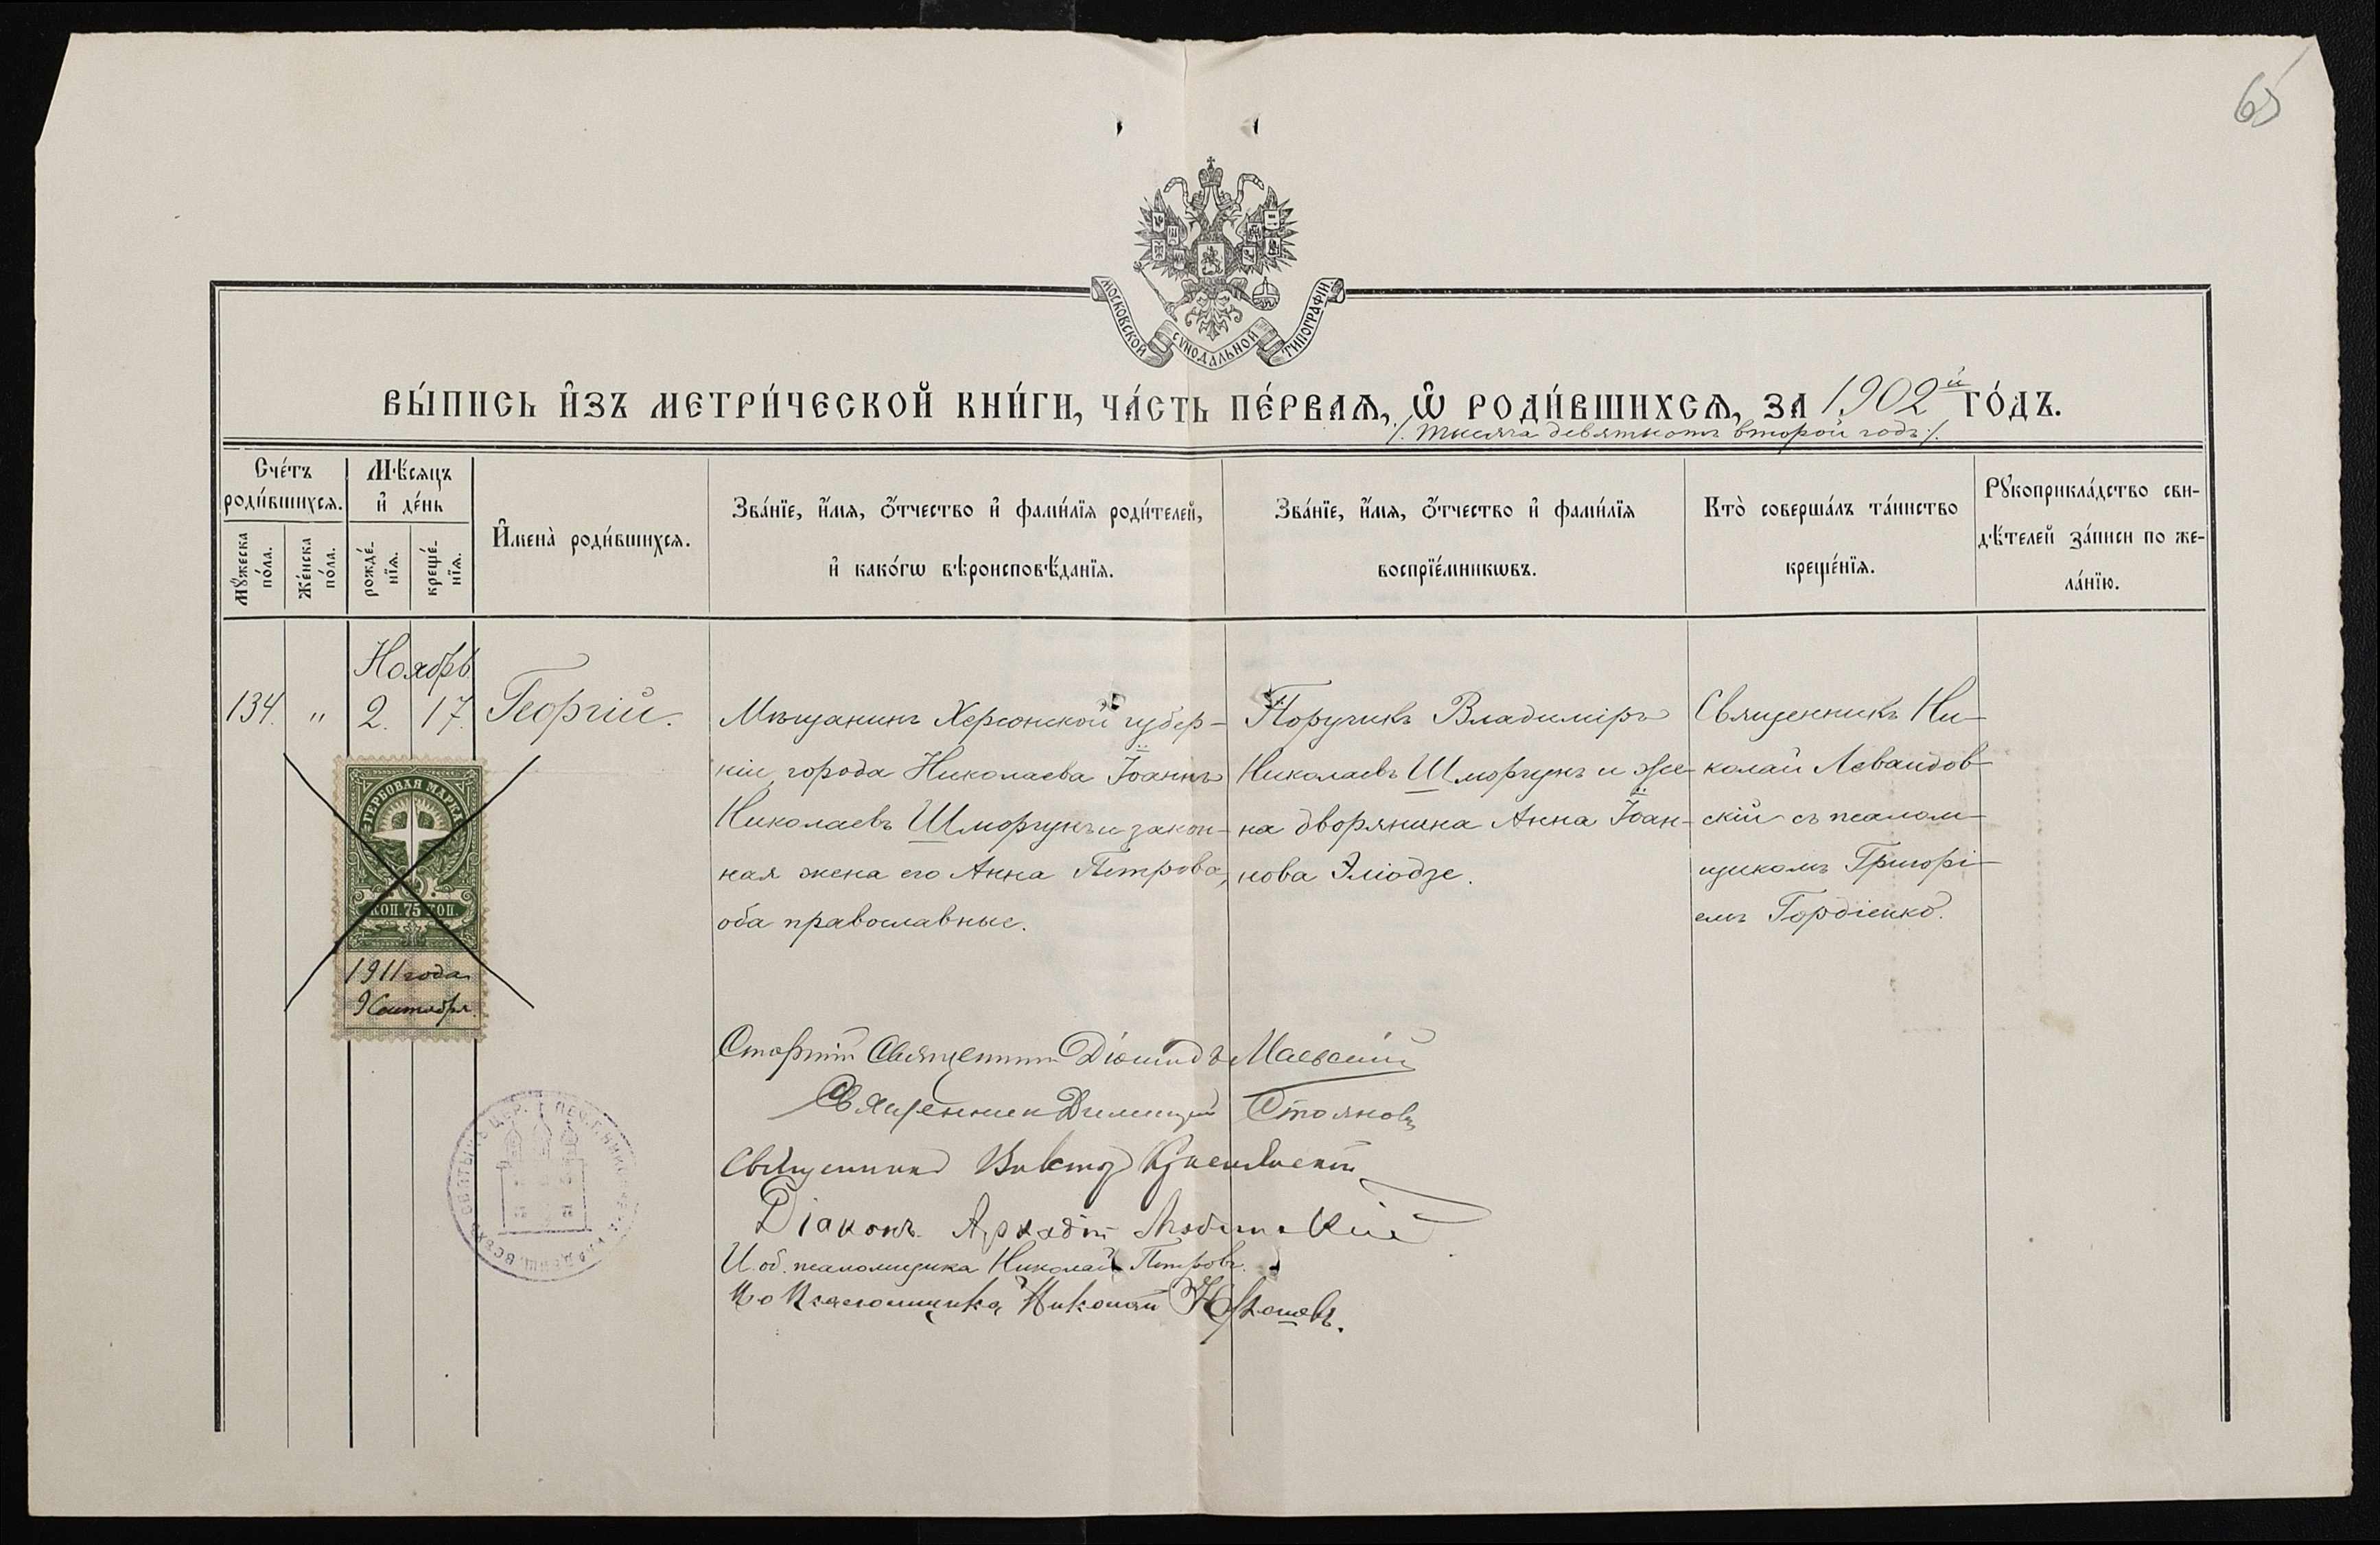 65
МОСКОВСКОЙ СѴНОДАЛЬНОЙ ТИПОГРАФІИ
ВЫ́ПИСЬ И҆ЗЪ МЕТРИ́ЧЕСКОЙ КНИ́ГИ, ЧА́СТЬ ПЕ́РВАѦ, Ѡ҆ РОДИ́ВШИХСѦ, ЗА 1902й ГО́ДЪ.
/. Тысяча девятьсотъ второй годъ ./.
Сче́тъ роди́вшихсѧ.
Мꙋ́жеска по́ла.
Же́нска по́ла.
Мѣ́сѧцъ и҆ де́нь
рожде́нїѧ.
креще́нїѧ.
И҆мена̀ роди́вшихсѧ.
Зва́нїе, и҆́мѧ, ѻ҆́тчество и҆ фами́лїѧ роди́телей,
и҆ како́гѡ вѣроисповѣ́данїѧ.
Зва́нїе, и҆́мѧ, ѻ҆́тчество и҆ фами́лїѧ
воспрїе́мникѡвъ.
Кто̀ соверша́лъ та́инство
креще́нїѧ.
Рꙋкоприкла́дство сви-
дѣ́телей за́писи по же-
ла́нїю.
Ноябрь
134. " 2. 17. Георгій.
Мѣщанинъ Херсонской губер-
ніи города Николаева Іоаннъ
Николаевъ Шморгунъ и закон-
ная жена его Анна Петрова,
оба православные.
Поручикъ Владиміръ
Николаевъ Шморгунъ и же-
на дворянина Анна Іоан-
нова Эліодзе.
Священникъ Ни-
колай Левандов-
скій съ псалом-
щикомъ Григорі-
емъ Гордіенко.
ГЕРБОВАЯ МАРКА
КОП. 75 КОП.
1911 года
9 Сентября.
Старшій Священникъ Діомидъ Маевскій
Священникъ Димитрій Стояновъ
Священникъ Викторъ
Діаконъ Аркадій
И. об. псаломщика Николай Петровъ.
И о Псаломщика Николай